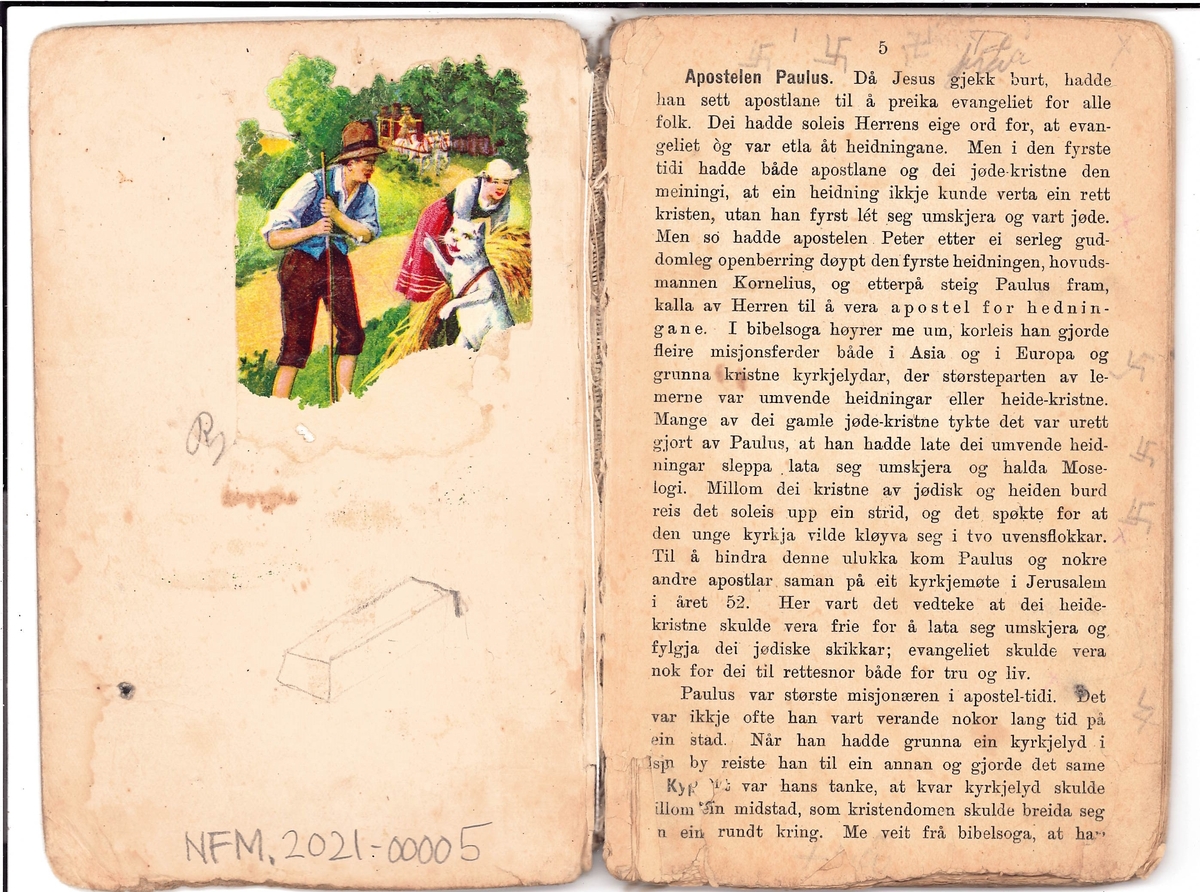 NFM.2021-00005
5
Apostelen Paulus. Då Jesus gjekk burt, hadde
han sett apostlane til å preika evangeliet for alle
folk. Dei hadde soleis Herrens eige ord for, at evan-
geliet òg var etla åt heidningane. Men i den fyrste
tidi hadde både apostlane og dei jøde-kristne den
meiningi, at ein heidning ikkje kunde verta ein rett
kristen, utan han fyrst lét seg umskjera og vart jøde.
Men so hadde apostelen Peter etter ei serleg gud-
domleg openberring døypt den fyrste heidningen, hovuds-
mannen Kornelius, og etterpå steig Paulus fram,
kalla av Herren til å vera apostel for hednin-
gane. I bibelsoga høyrer me um, korleis han gjorde
fleire misjonsferder både i Asia og i Europa og
grunna kristne kyrkjelydar, der størsteparten av le-
merne var umvende heidningar eller heide-kristne.
Mange av dei gamle jøde-kristne tykte det var urett
gjort av Paulus, at han hadde late dei umvende heid-
ningar sleppa lata seg umskjera og halda Mose-
logi. Millom dei kristne av jødisk og heiden burd
reis det soleis upp ein strid, og det spøkte for at
den unge kyrkja vilde kløyva seg i tvo uvensflokkar.
Til å hindra denne ulukka kom Paulus og nokre
andre apostlar saman på eit kyrkjemøte i Jerusalem
i året 52. Her vart det vedteke at dei heide-
kristne skulde vera frie for å lata seg umskjera og
fylgja dei jødiske skikkar; evangeliet skulde vera
nok for dei til rettesnor både for tru og liv.
Paulus var største misjonæren i apostel-tidi. Det
var ikkje ofte han vart verande nokor lang tid på
ein stad. Når han hadde grunna ein kyrkjelyd i
by reiste han til ein annan og gjorde det same
var hans tanke, at kvar kyrkjelyd skulde
midstad, som kristendomen skulde breida seg
rundt kring. Me veit frå bibelsoga, at